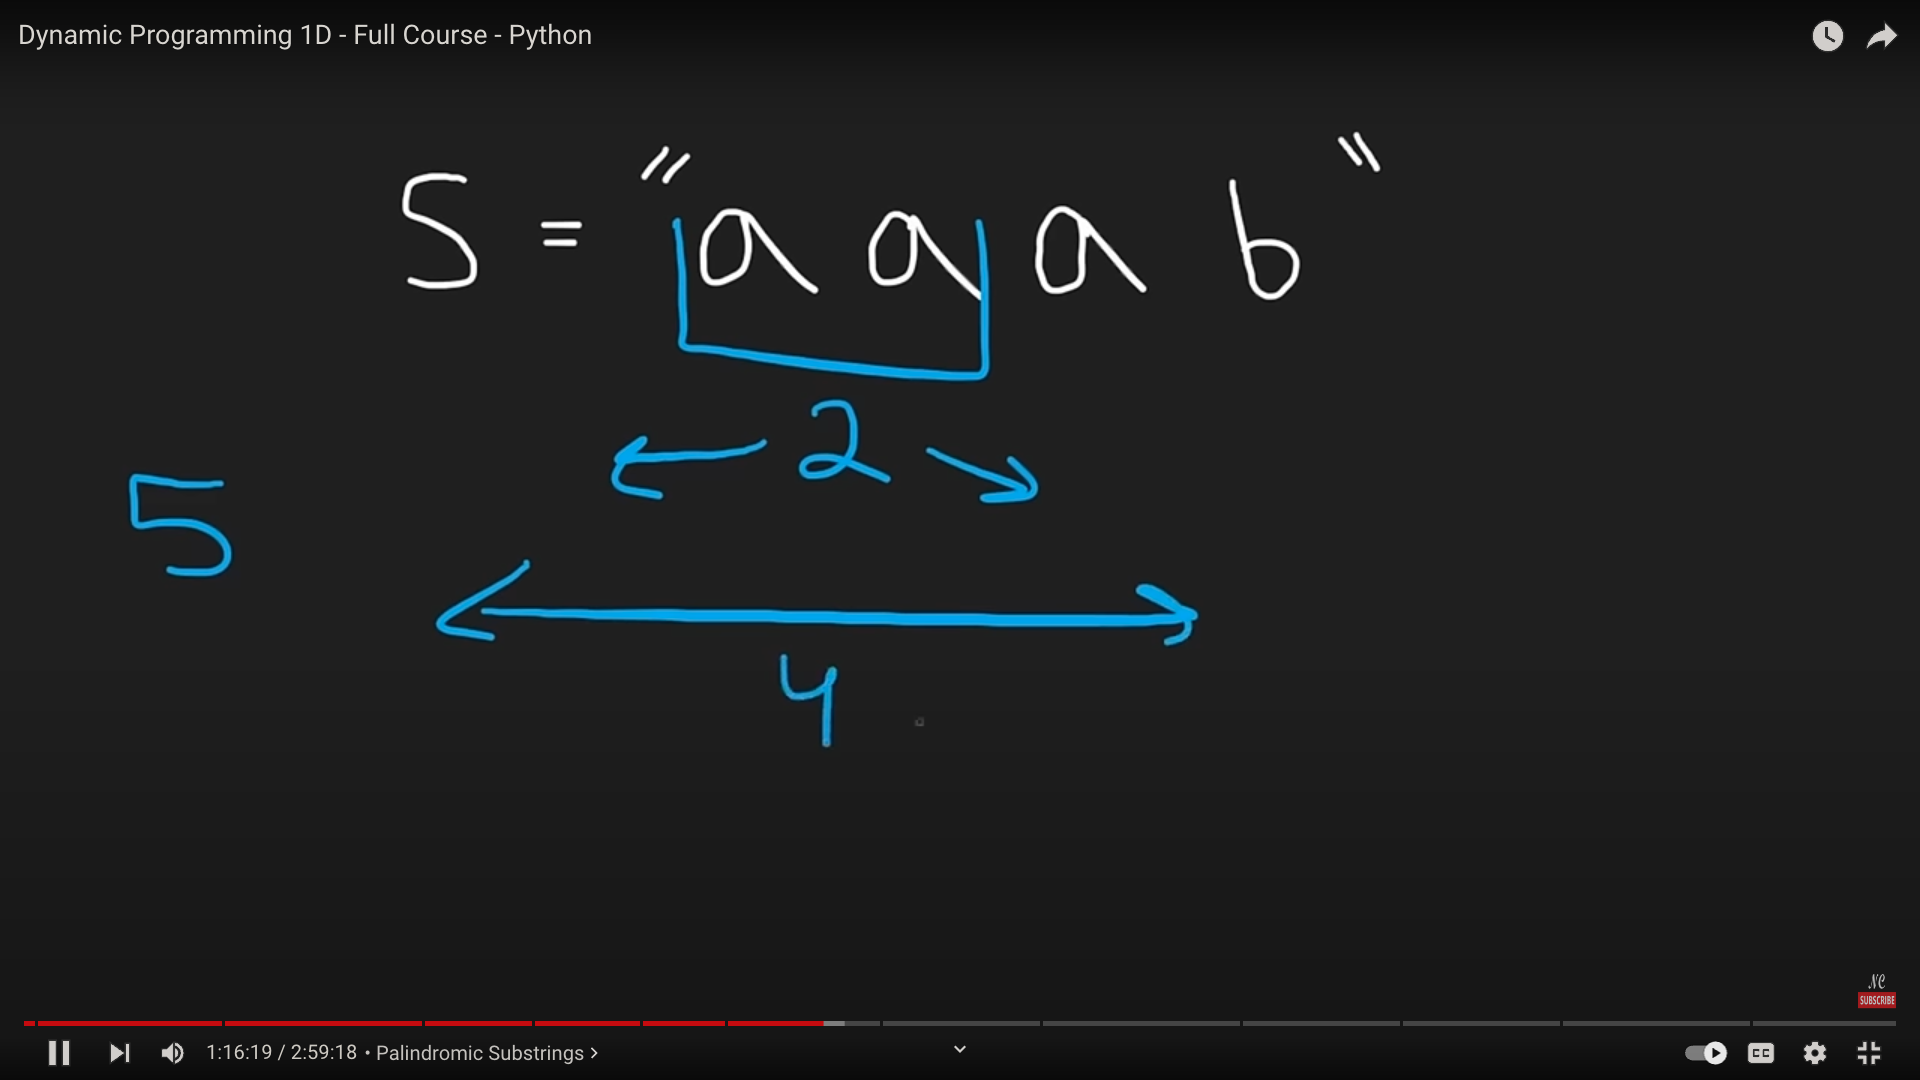 Dynamic Programming 1D - Full Course - Python
S = "a a a b"
2
5
4
NC
SUBSCRIBE
1:16:19 / 2:59:18 • Palindromic Substrings >
CC